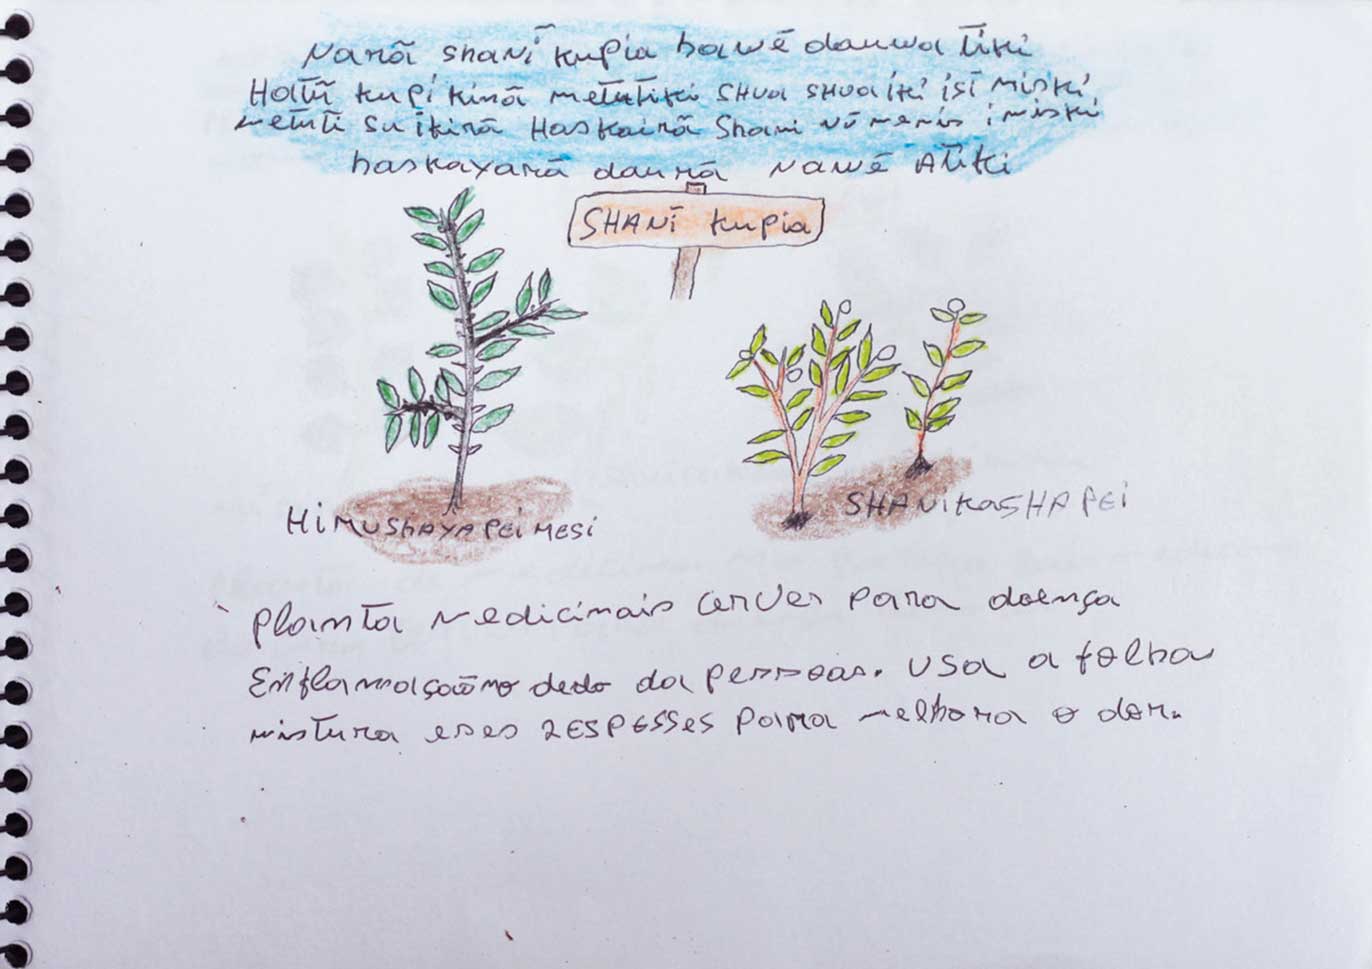 Narã shanĩ kupia hawẽ dauwa tĩki
Hatũ kupĩ kinã metutiki SHua SHua iki isĩ miski
metuti su ikinã Haskainã Shani nũ menis imiski
haskayanã daunã nawẽ Atiki
SHANĨ kupia
HiMUSHAYA PEI MESI
SHANIKASHA PEI
Planta Medicinais cerver para doença
Enflamação no dedo da pessoas. USA a folha
mistura eses 2 ESPESSES para melhora o dor.